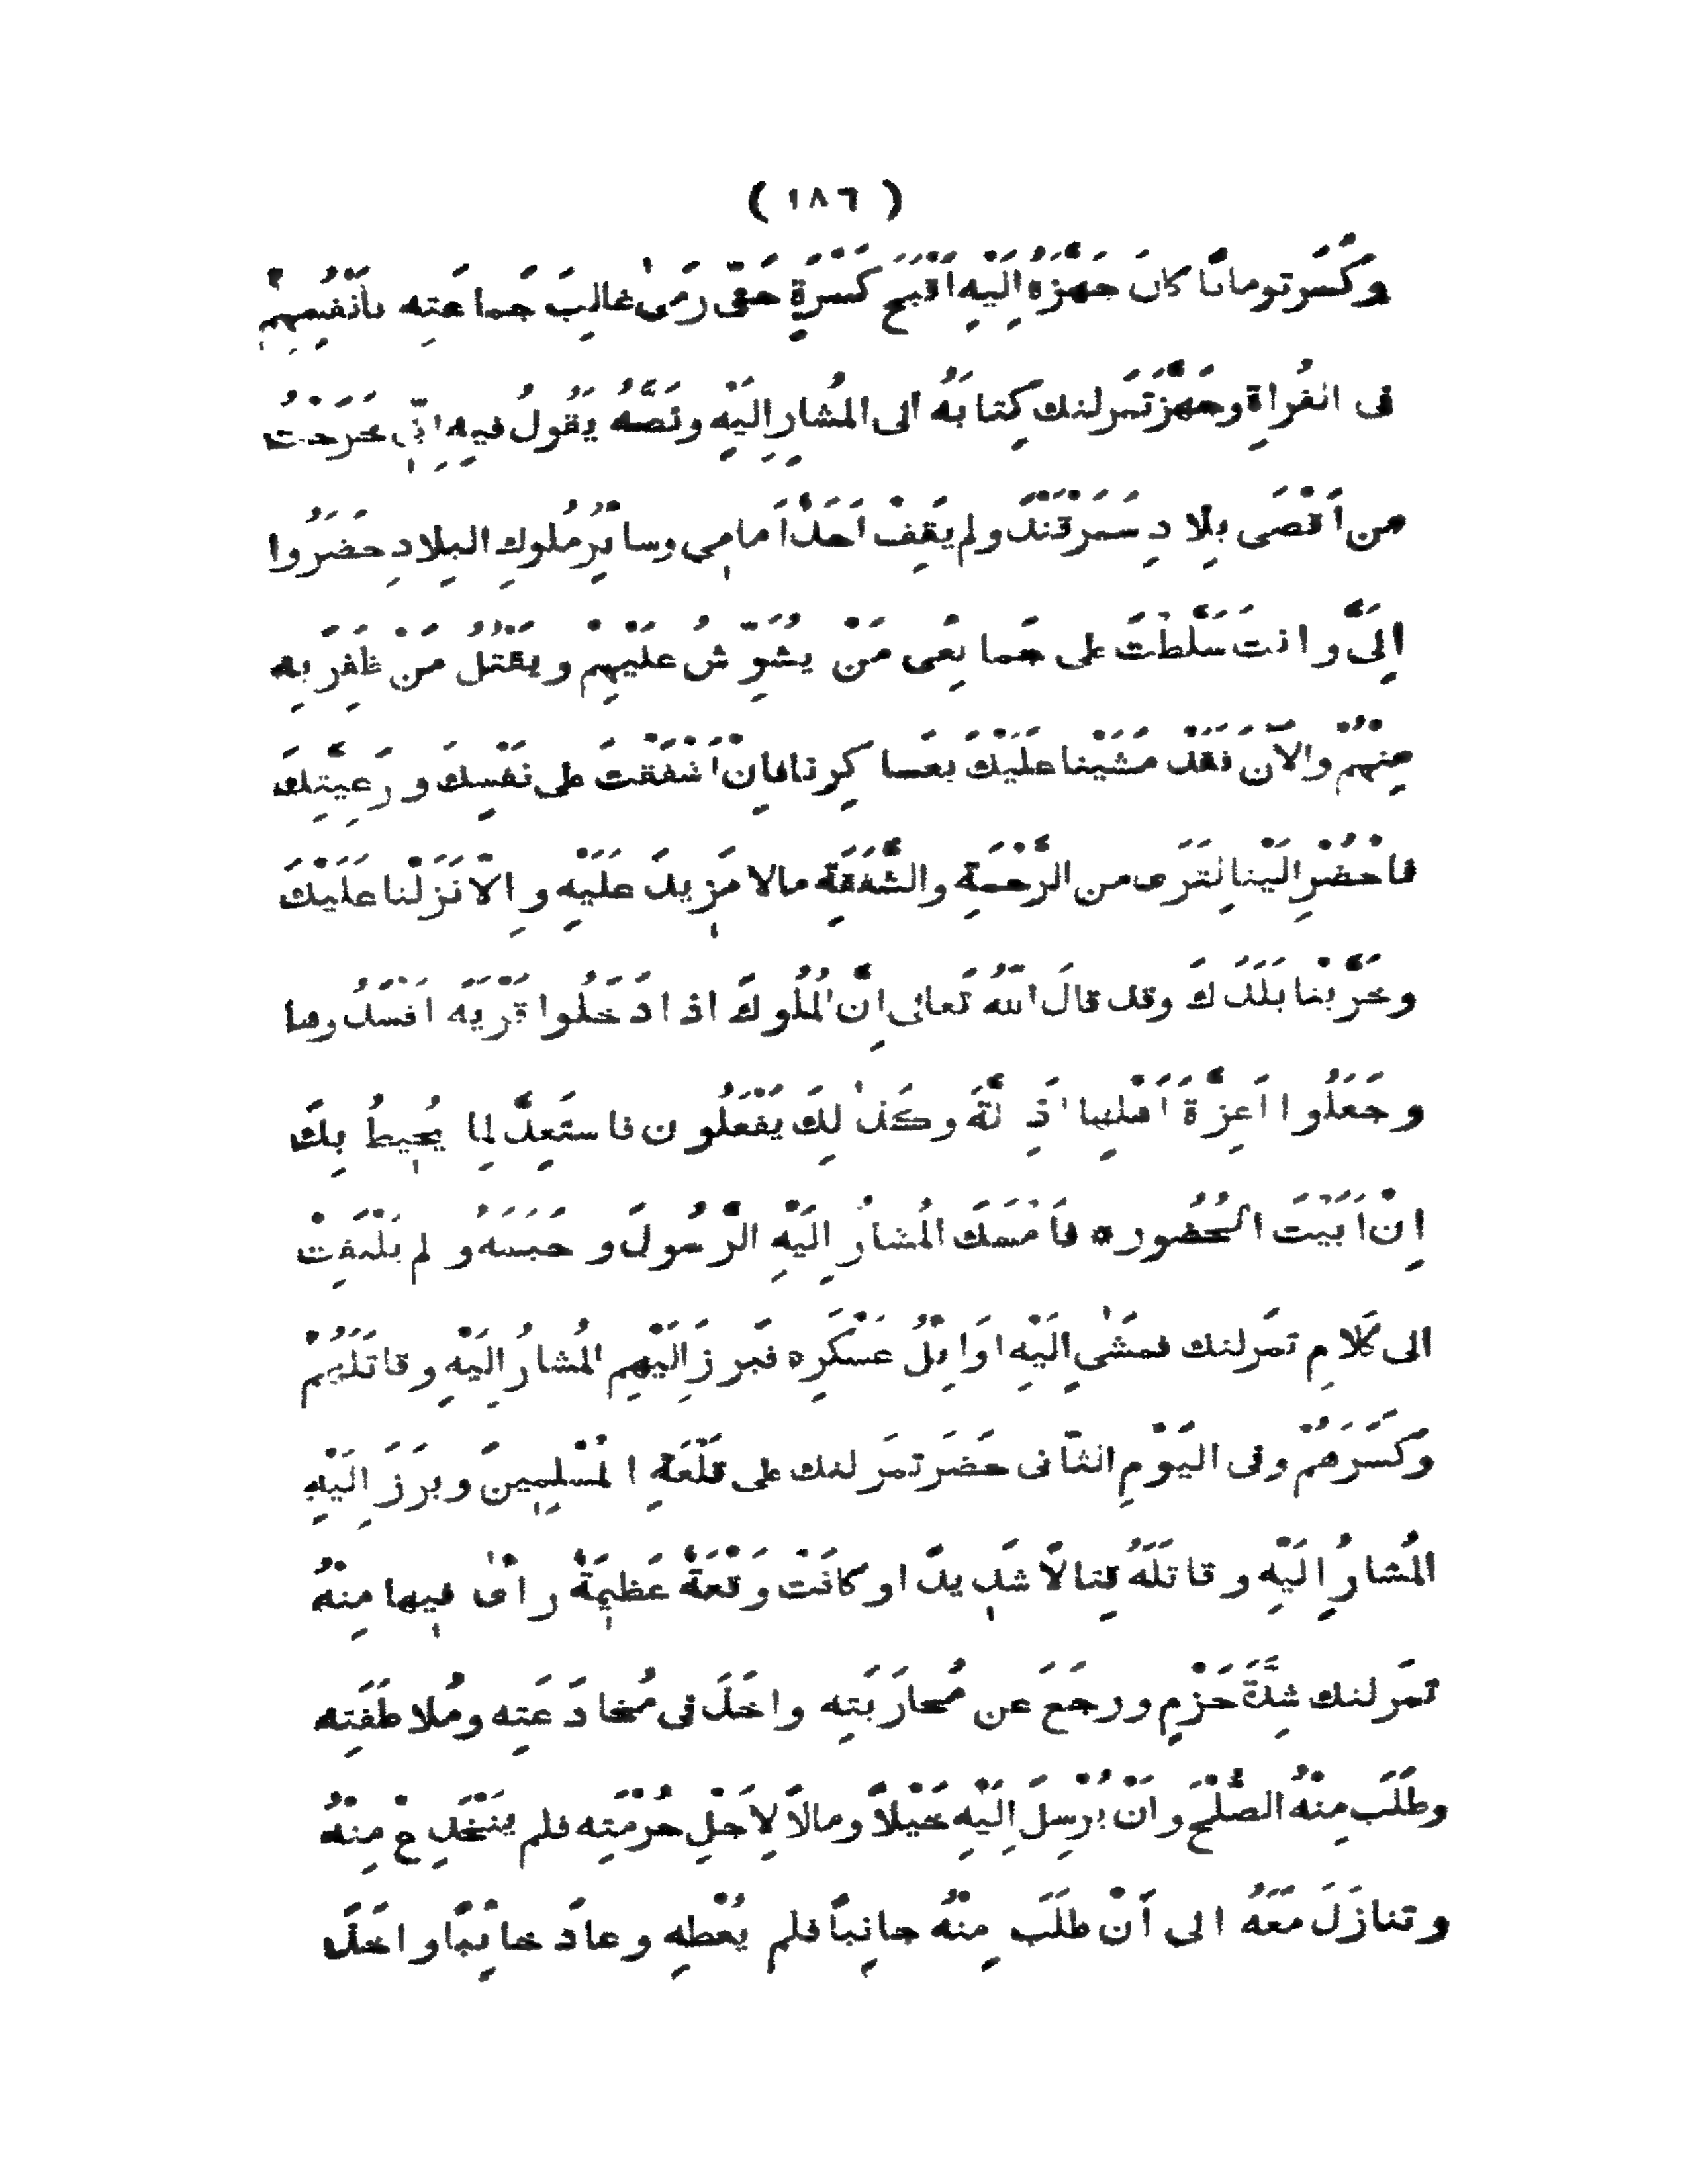 ( ١٨٦ )
وَكَسَرَ تومانًا كانَ جَهَّزَهُ اِلَيْهِ اَقْبَحَ كَسْرَةٍ حَتّى رَمىٰ غالِبَ جَماعَتِه بأنْفُسِهِمْ
فى الفُراةِ وجَهَّزَ تَمَرلنك كِتابَهُ الى المُشارِ اِلَيْهِ ونَصُّهُ يَقُولُ فيهِ اِنّى خَرَجْتُ
من اَقْصَى بِلادِ سَمَرْقَنْدَ ولم يَقِفْ اَحَدٌ اَمامِي وسائِرُ مُلوكِ البِلادِ حَضَرُوا
اِلَىَّ وانتَ سَلَّطْتَ على جَماعَتِى مَنْ يُشَوِّشُ عَلَيْهِمْ ويَقْتُلُ مَنْ ظَفِرَ بِه
مِنْهُمْ والآنَ فَقَدْ مَشَيْنا عَلَيْكَ بعَساكِرِنا فاِنْ اَشْفَقْتَ على نَفْسِكَ ورَعِيَّتِكَ
فاحْضُرْ اِلَيْنا لِتَرَى من الرَّحْمَةِ والشَّفَقَةِ مالا مَزِيدَ عَلَيْهِ واِلّا نَزَلْنا عَلَيْكَ
وخَرَّبْنا بَلَدَكَ وقد قالَ اللهُ تَعالى اِنَّ المُلُوكَ اذا دَخَلُوا قَرْيَةً افْسَدُوها
وجَعَلُوا اَعِزَّةَ اَهْلِها اَذِلَّةً وكَذٰلِكَ يَفْعَلُون فاستَعِدَّ لِما يُحِيطُ بِكَ
اِنْ اَبَيْتَ الحُضُوره فَاَمْسَكَ المُشارُ اِلَيْهِ الرَّسُولَ وحَبَسَهُ ولم يَلْتَفِتْ
الى كَلامِ تمَرلنك فمَشٰى اِلَيْهِ اوَائِلُ عَسْكَرِه فَبَرزَ اِلَيْهِم المُشارُ اِلَيْهِ وقاتَلَهُمْ
وَكَسَرَهُمْ وفى اليَوْمِ الثّانى حَضَرَ تمَرلنك على قَلْعَةِ المُسْلِمِينَ وبَرَزَ اِلَيْهِ
المُشارُ اِلَيْهِ وقاتَلَهُ قِتالًا شَدِيدًا وكانَتْ وَقْعَةً عَظِيمَةً رأٰى فِيها مِنْهُ
تمَرلنك شِدَّةَ حَزْمٍ ورجَعَ عن مُحارَبَتِه واخَذَ فى مُخادَعَتِه ومُلاطَفَتِه
وطَلَبَ مِنْهُ الصُّلْحَ وانْ يُرْسِلَ اِلَيْهِ خَيْلًا ومالًا لِاَجْلِ حُرْمَتِه فلم يَنْخَدِعْ مِنْهُ
وتنازَلَ مَعَهُ الى اَنْ طَلَبَ مِنْهُ جانِبًا فلم يُعْطِهِ وعادَ خائِبًا واخَذَ